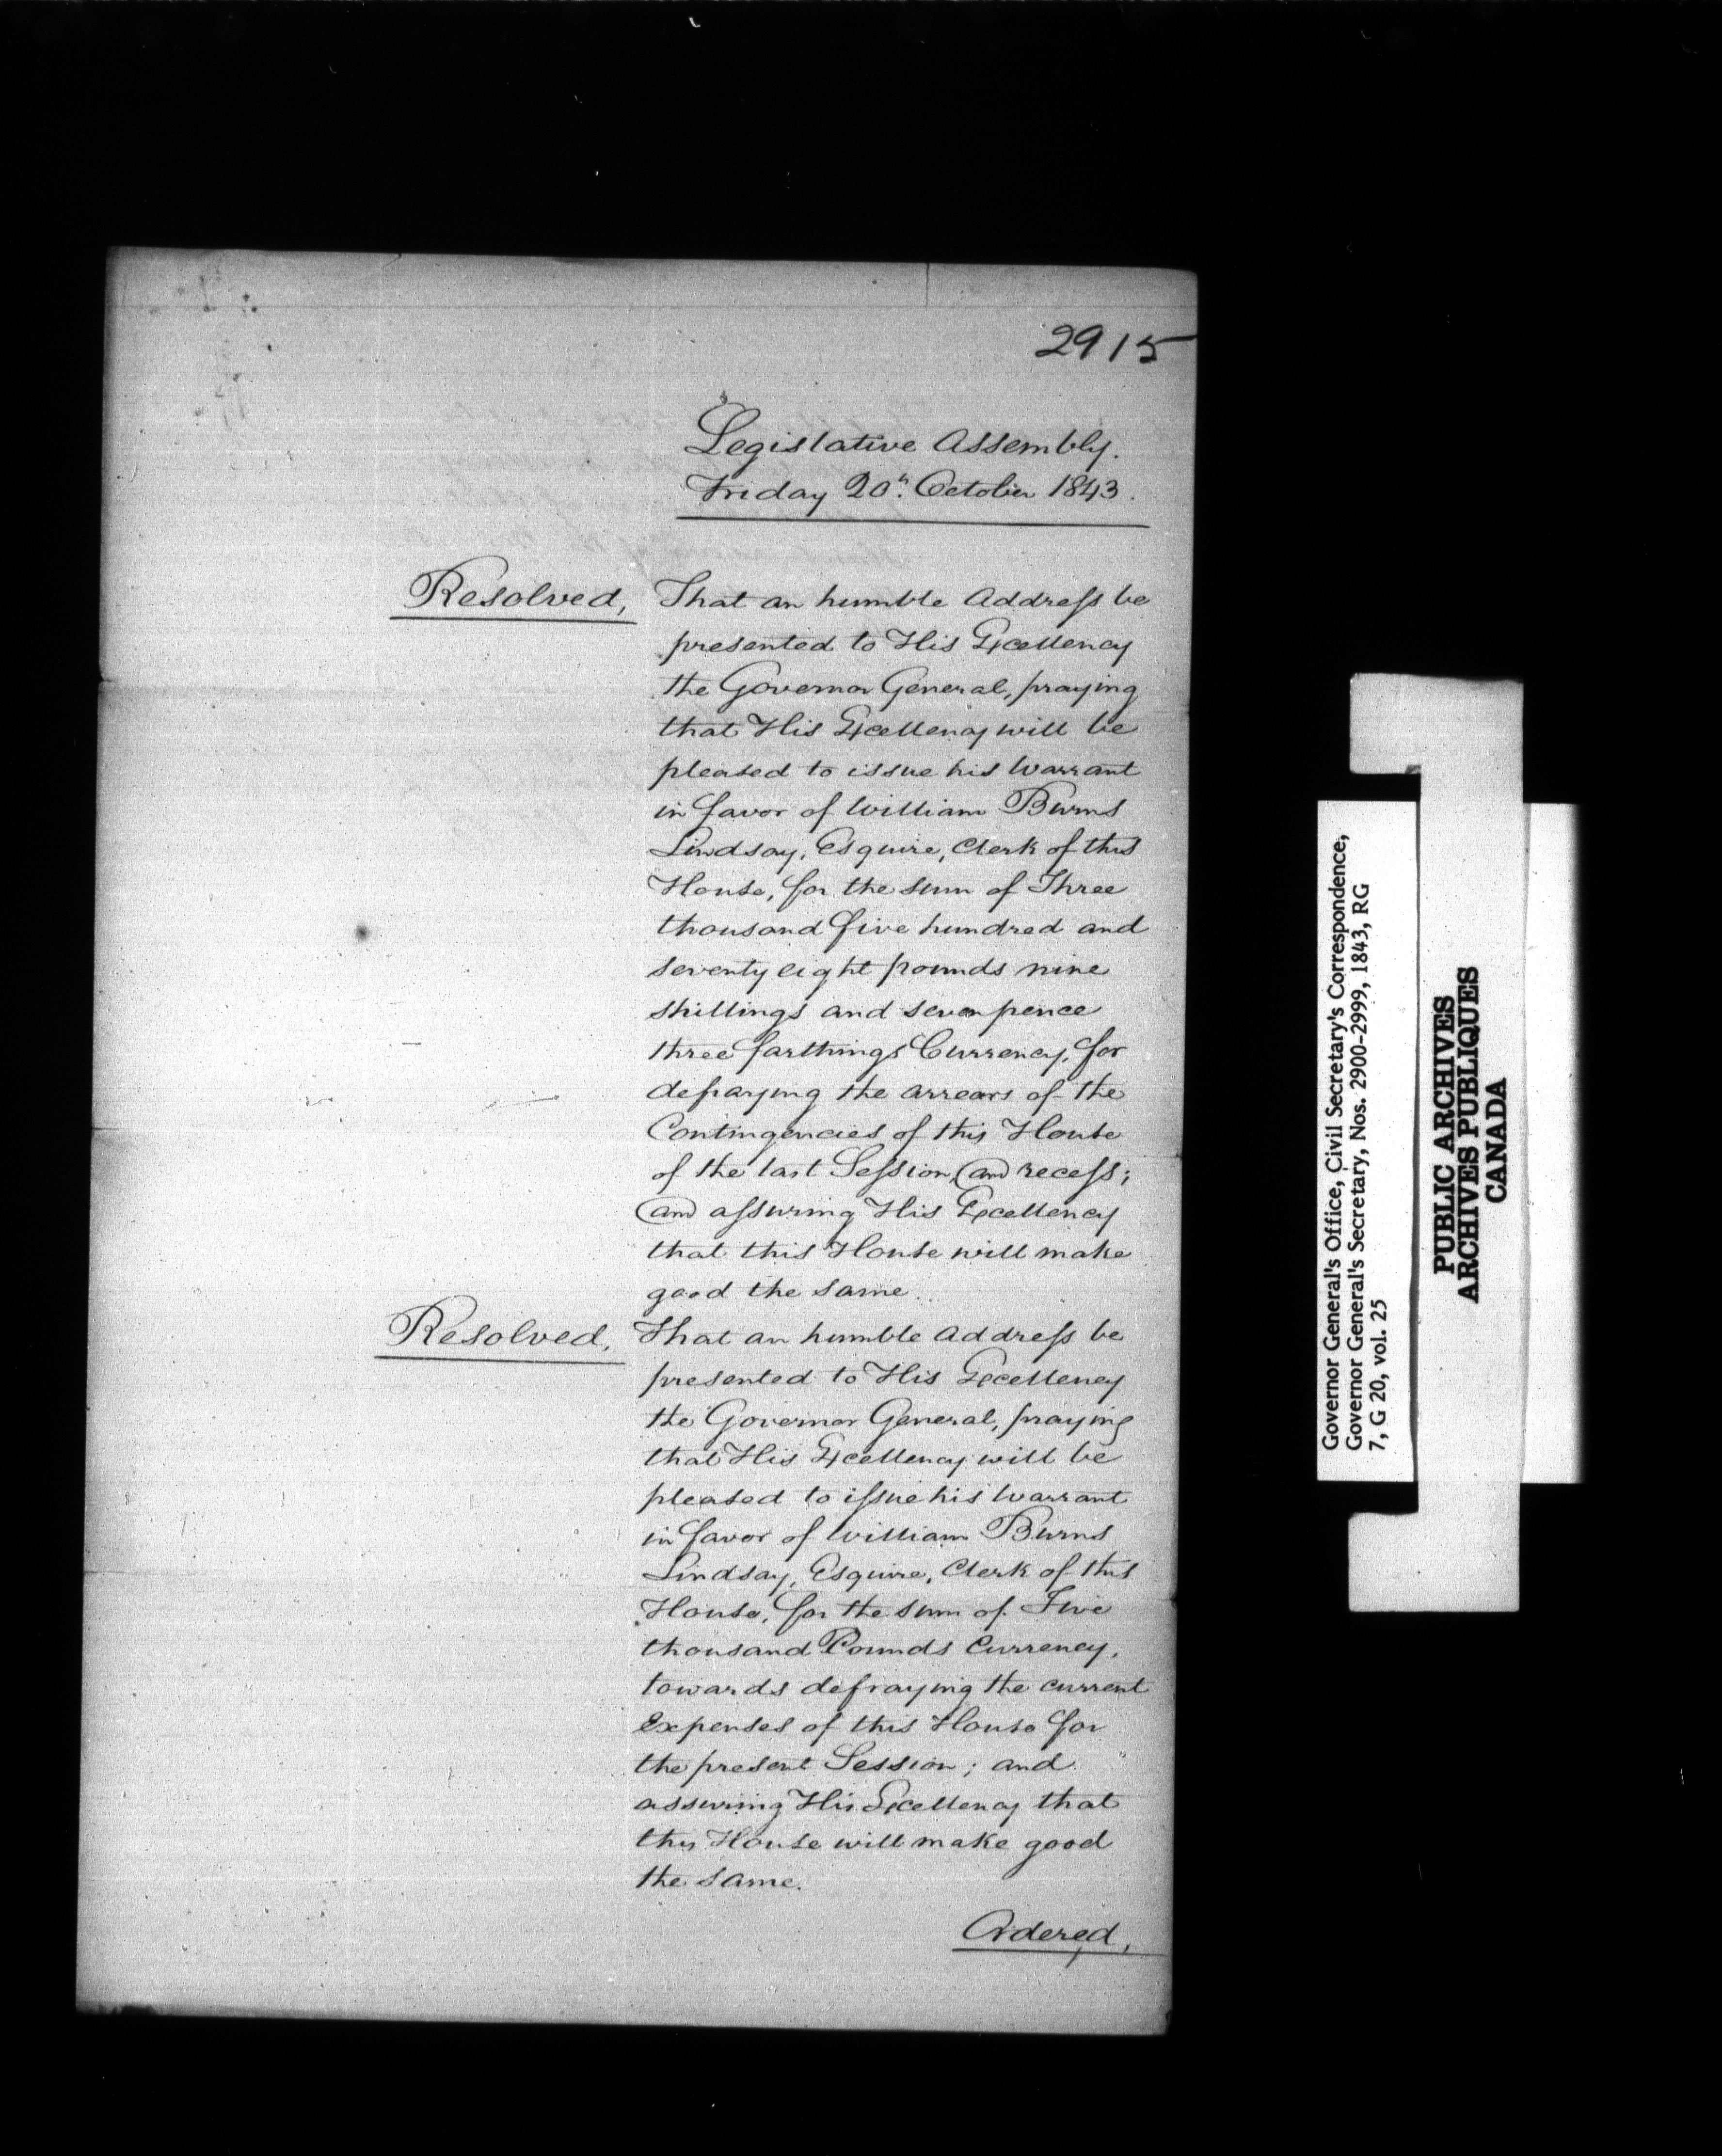 2915
Legislative Assembly.
Friday 20th. October 1843.
Resolved, That an humble Address be
presented to His Excellency
the Governor General, praying
that His Excellency will be
pleased to issue his Warrant
in favor of William Burns
Lindsay, Esquire, Clerk of this
House, for the sum of Three
thousand five hundred and
seventy eight pounds nine
shillings and seven pence
three farthings Currency, for
defraying the arrears of the
Contingencies of this House
of the last Session, and recess;
and assuring His Excellency
that this House will make
good the same.
Resolved, That an humble Address be
presented to His Excellency
the Governor General, praying
that His Excellency will be
pleased to issue his Warrant
in favor of William Burns
Lindsay, Esquire, Clerk of this
House, for the sum of Five
thousand Pounds Currency,
towards defraying the current
Expenses of this House for
the present Session; and
assuring His Excellency that
this House will make good
the same.
Ordered,
Governor General's Office, Civil Secretary's Correspondence,
Governor General's Secretary, Nos. 2900-2999, 1843, RG
7, G 20, vol. 25
PUBLIC ARCHIVES
ARCHIVES PUBLIQUES
CANADA